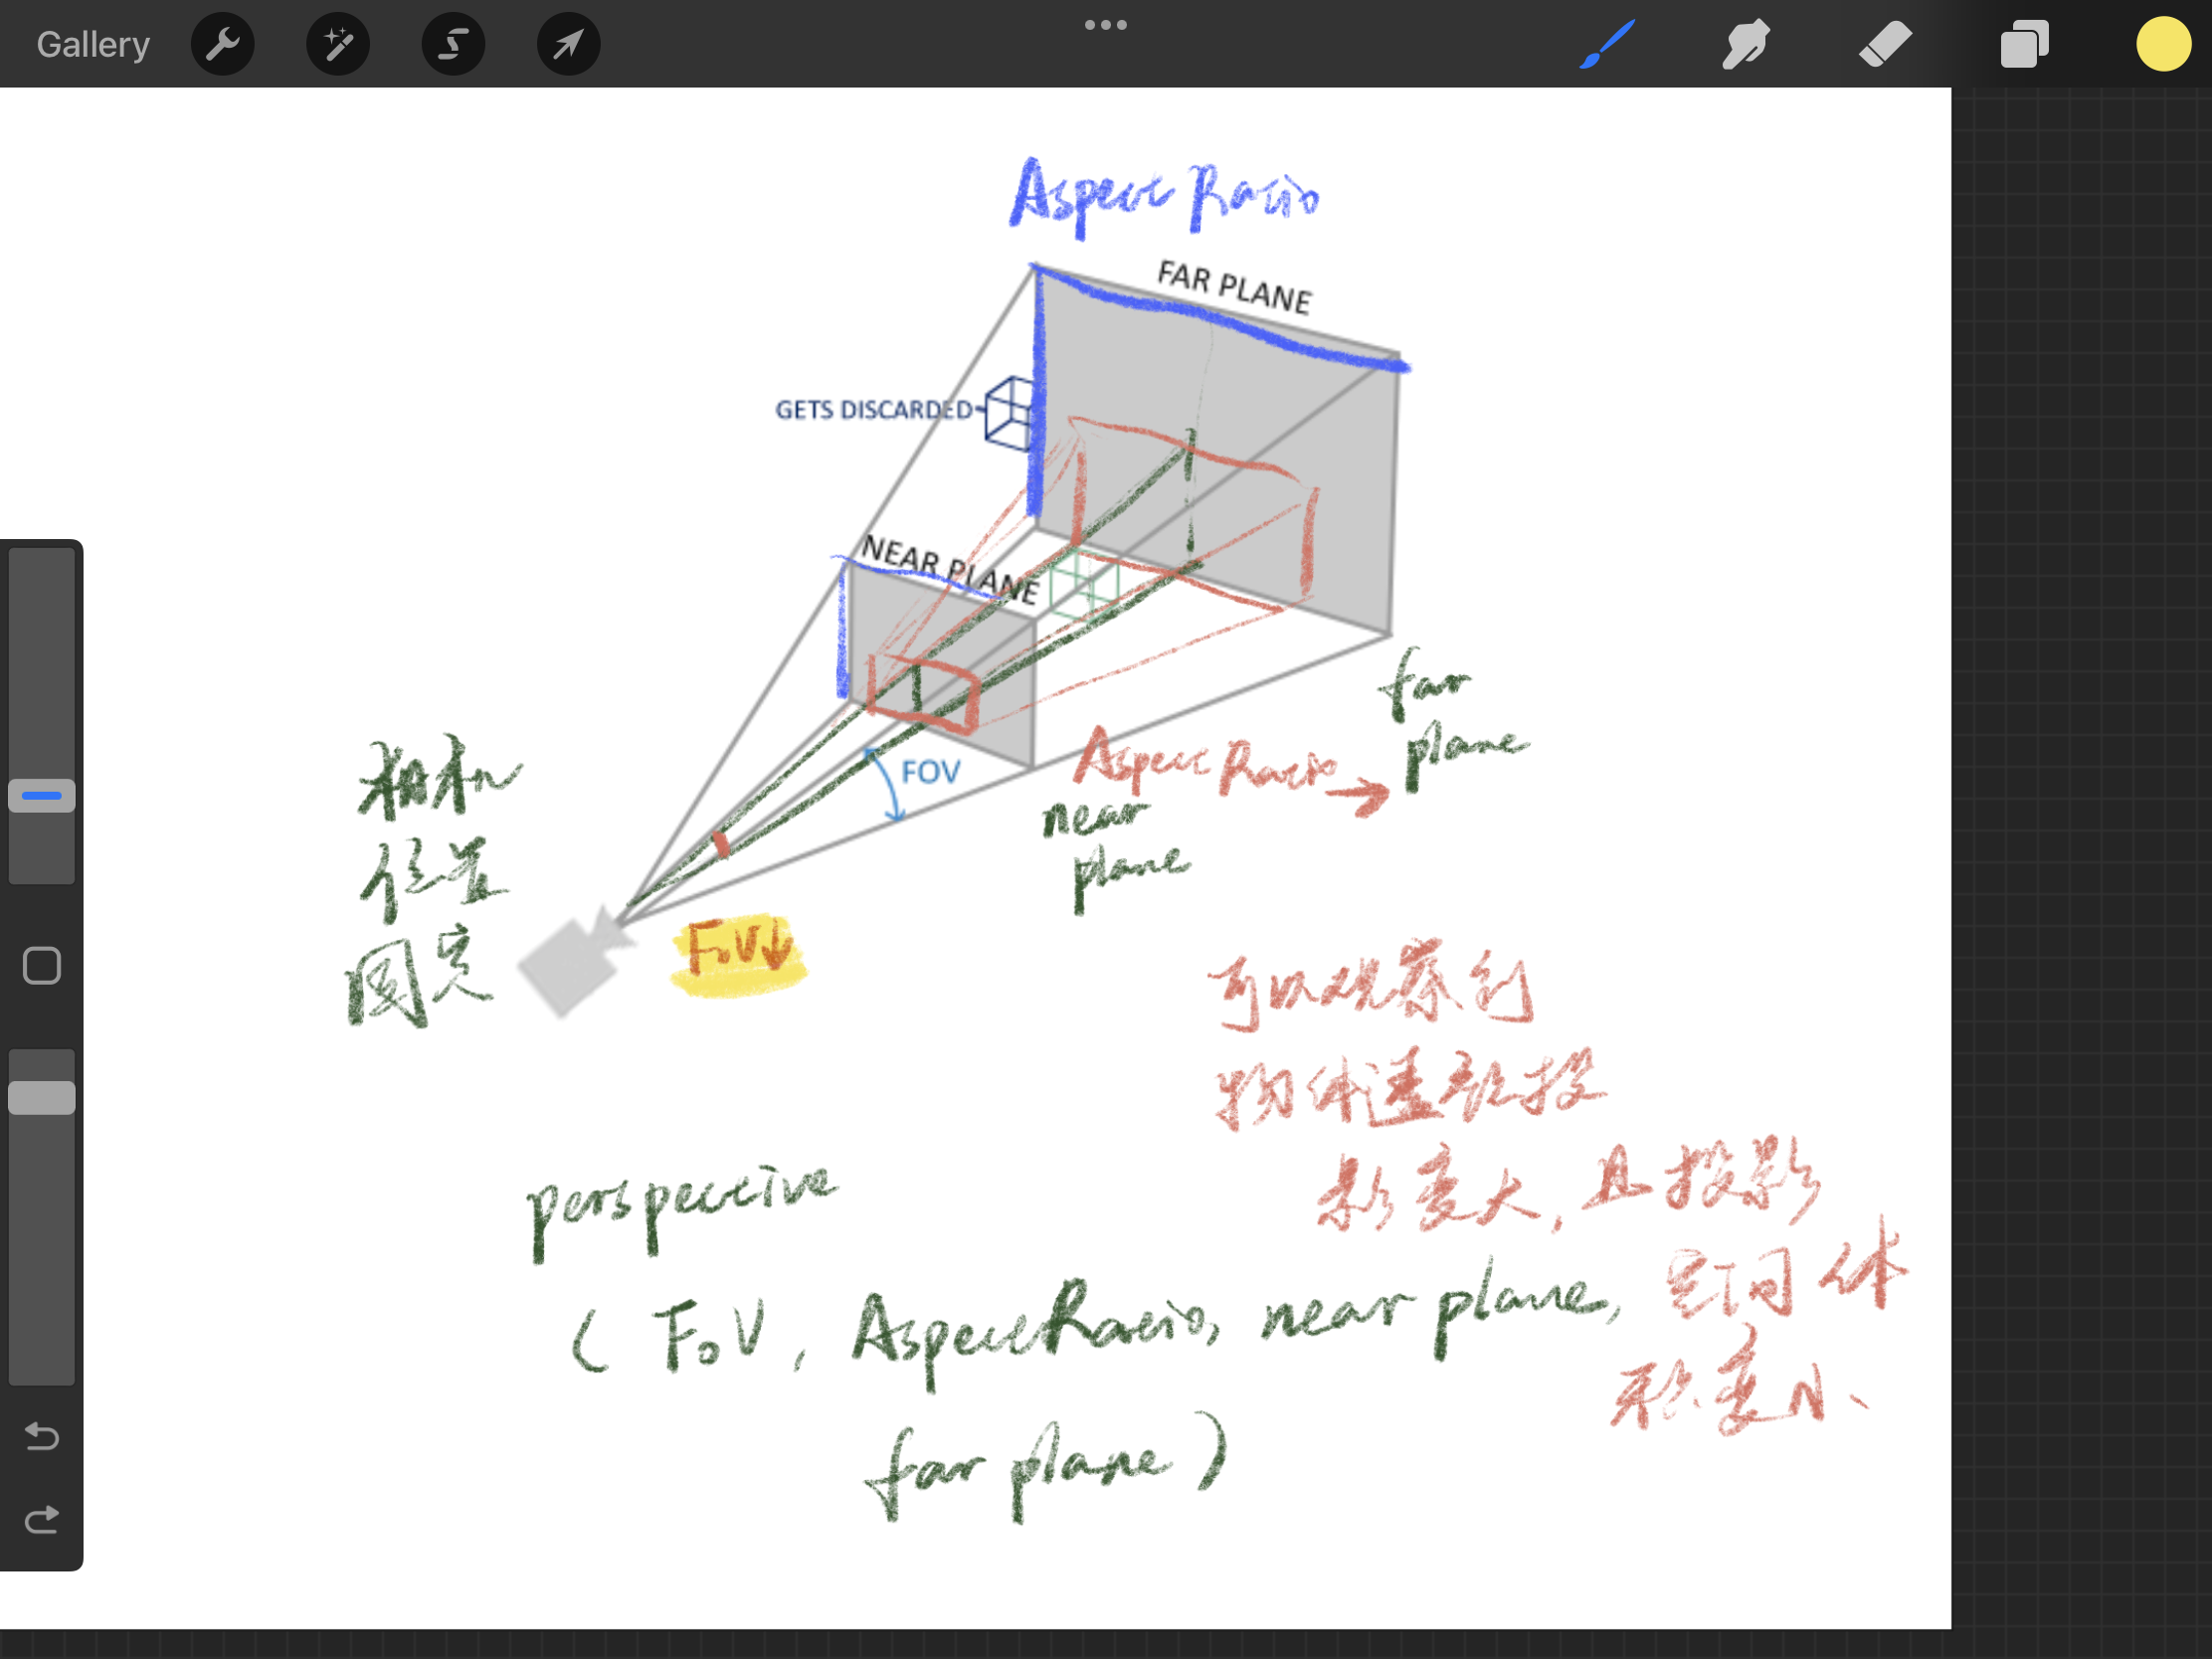 Gallery
Aspect Ratio
FAR PLANE
GETS DISCARDED
NEAR PLANE
far
plane
FOV
Aspect Ratio →
near
plane
相机
位置
固定
FoV↓
可以观察到
物体透视投
影变大, 且投影
空间体
积变小
perspective
( FoV, AspectRatio, near plane,
far plane )